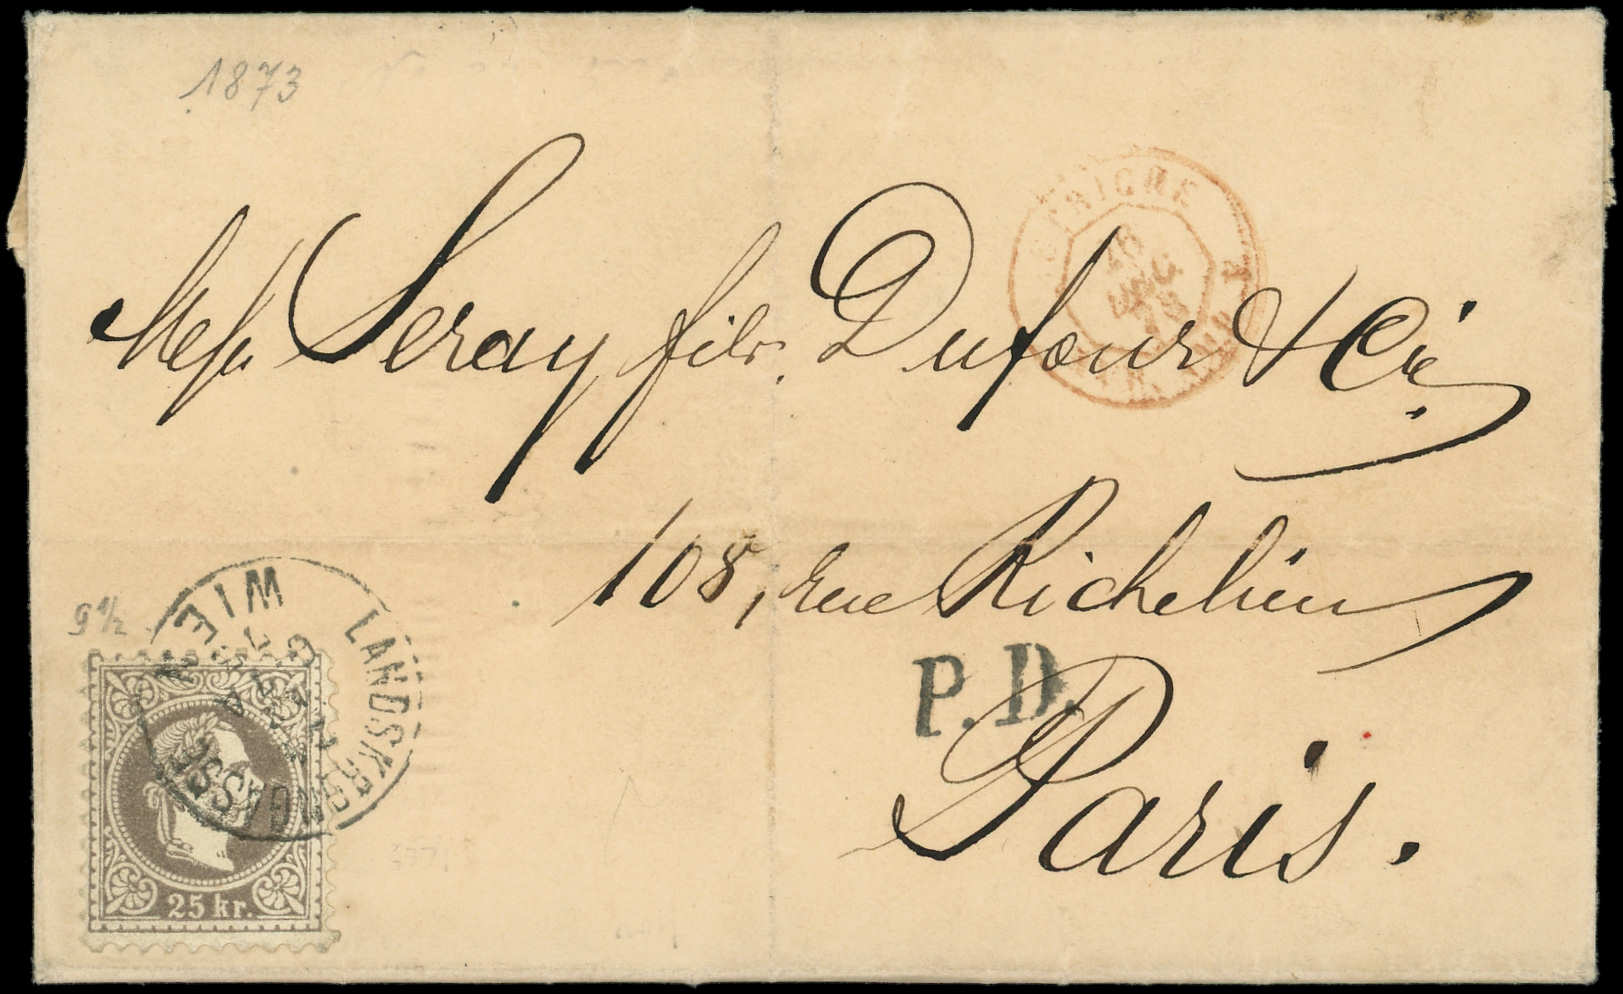 1873
Mess Seray fils. Dufour & Cie
108, rue Richelieu
P.D.
Paris.
9 1/2
WIEN
LANDSKRONGASSE
25 kr.